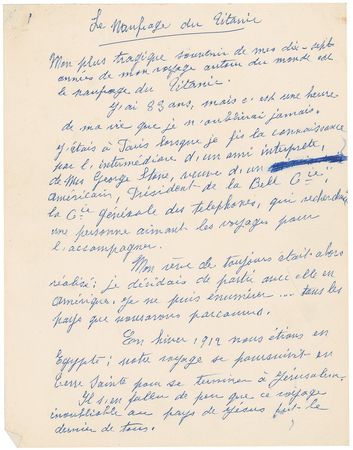 Le Naufrage du Titanic
Mon plus tragique souvenir de mes dix-sept
années de mon voyage autour du monde est
le naufrage du Titanic.
J'ai 83 ans, mais c'est une heure
de ma vie que je n'oublierai jamais.
J'étais à Paris lorsque je fis la connaissance
par l'intermédiaire d'un ami interprète,
de Mrs George Stone, veuve d'un
américain, Président de la Bell Cie
la Cie Générale des telephones, qui recherchait
une personne aimant les voyages pour
l'accompagner.
Mon rêve de toujours était alors
réalisé; je décidais de partir avec elle en
Amérique. Je ne puis énumérer ... tous les
pays que nous avons parcourus.
En hiver 1912 nous étions en
Egypte; notre voyage se poursuivit en
Terre Sainte pour se terminer à Jérusalem.
Il s'en fallu de peu que ce voyage
inoubliable au pays de Jésus fut le
dernier de tous.